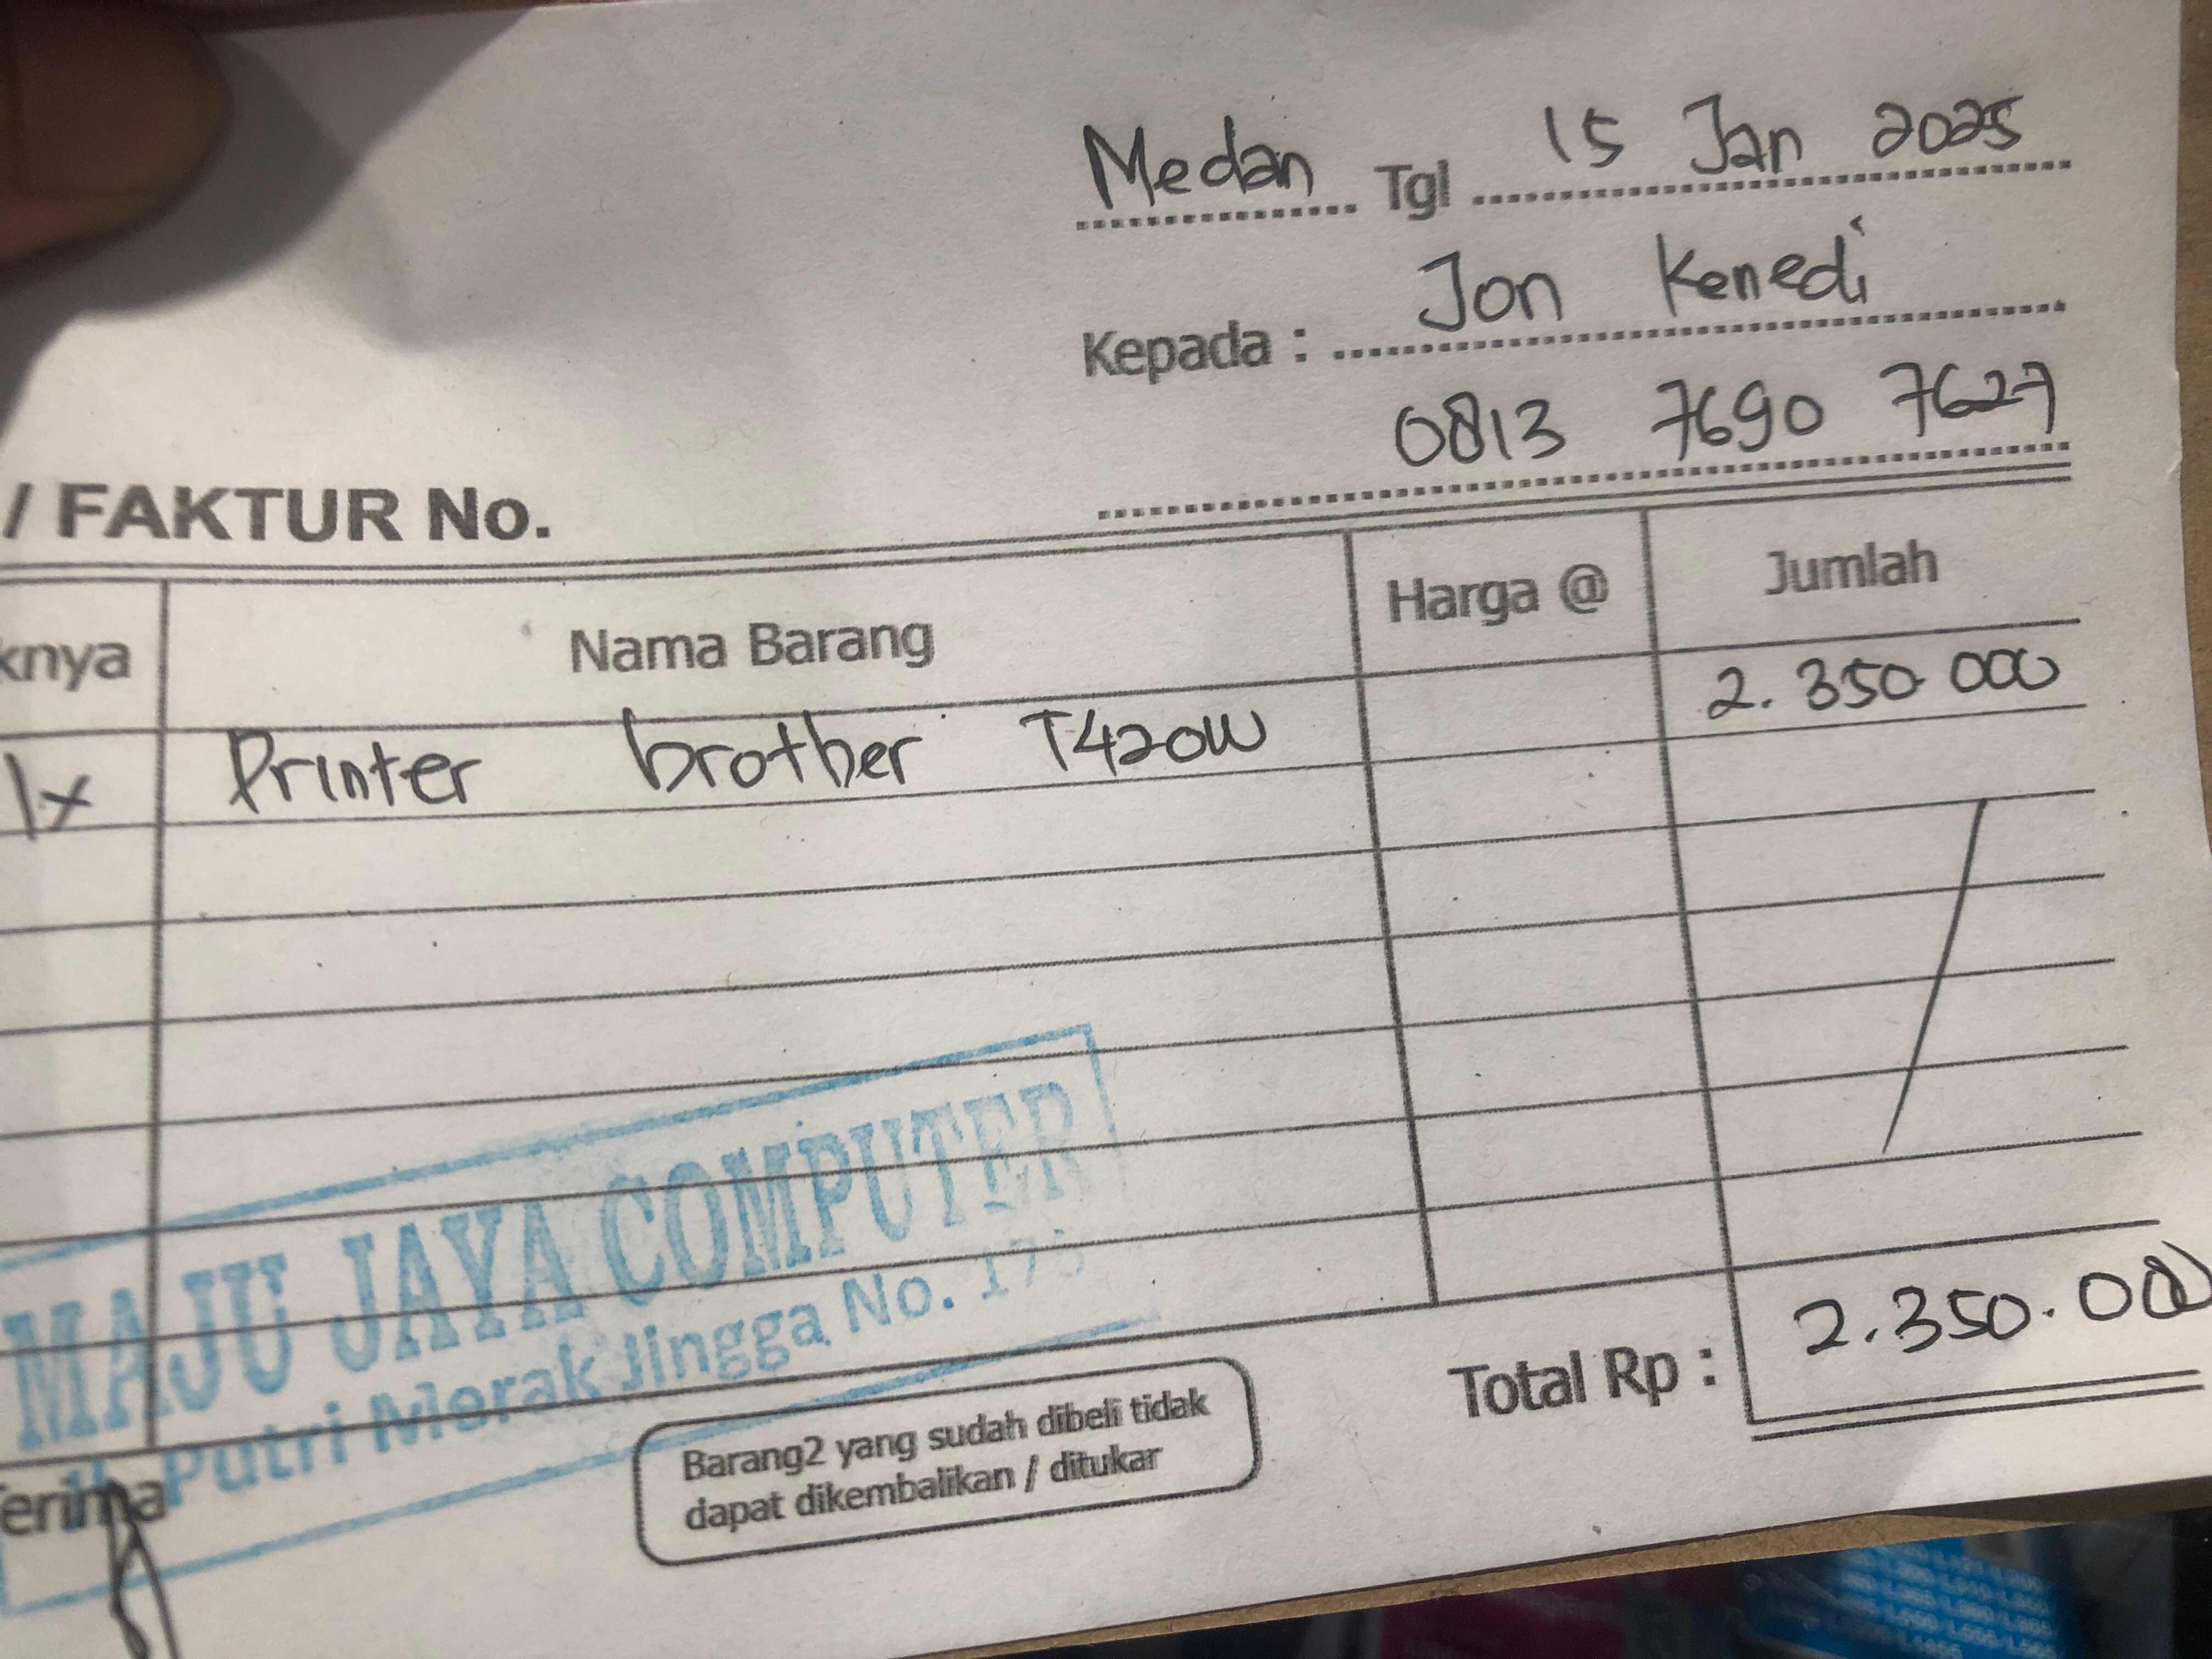 Medan Tgl 15 Jan 2025
Kepada : Jon Kenedi
0813 7690 7627
/ FAKTUR No.
knya Nama Barang Harga @ Jumlah
1x Printer brother T420W 2.350.000
MAJU JAYA COMPUTER
Putri Merak Jingga No.
Total Rp : 2.350.000
Terima
Barang2 yang sudah dibeli tidak
dapat dikembalikan / ditukar